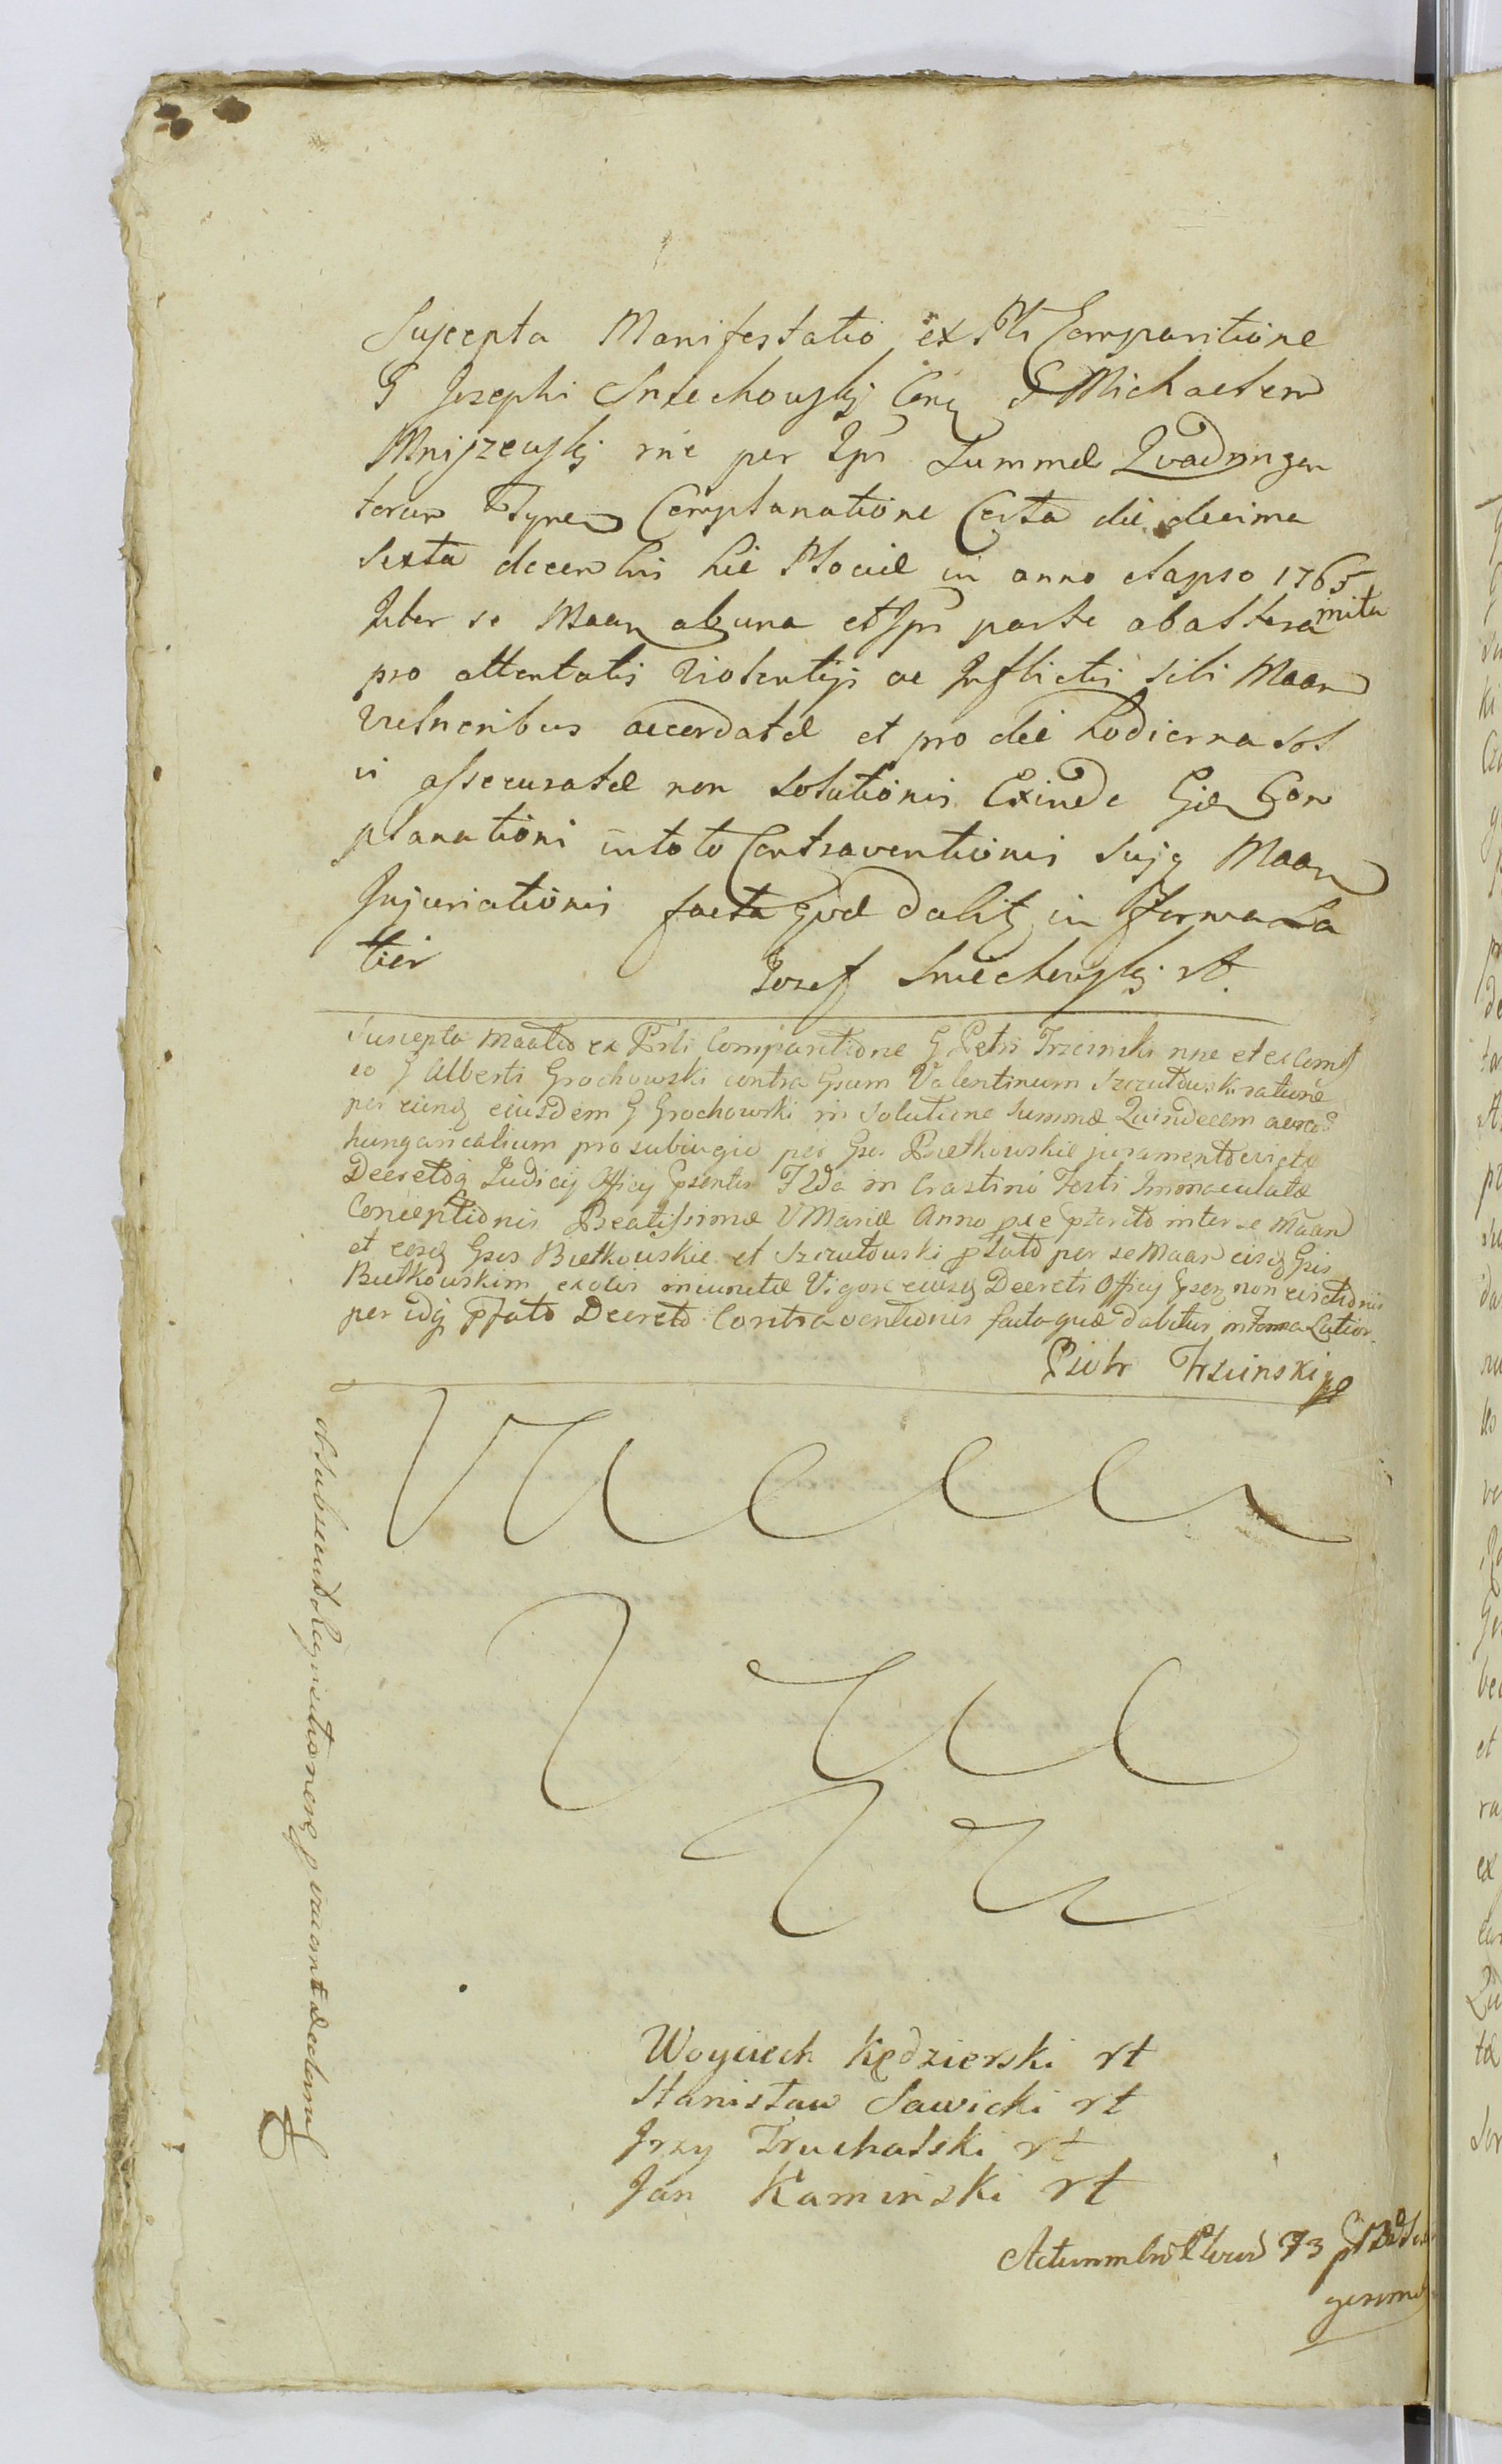 Suscepta Manifestatio ex Pli Comparitione
G Josephi Sniechowskj Con G Michaelem
Mniszewskj rne per Ipm Summæ Qvadringen
torum Tynen Complanatione Certa die decima
Sexta decembris hic Plociæ in anno elapso 1765
Inter se Maan ab una et Ipm parte ab altera inita
pro attentatis violentijs ac Inflictis sibi Maan
vulneribus accordatæ et pro die hodierna sol
vi assecuratæ non Solutionis Exinde Ejdē Con
planationi in toto Contraventionis Suiq Maan
Injuriationis facta Qvæ dabitz in Forma La
tior
Jozef Sniechowskj rt
Suscepta Maatio ex Prli Comparitione G Petri Trzcinski nne et ex Comiss
eo G Alberti Grochowski contra Gsum Valentinum Szczutowski ratione
per eunq eiusdem G Grochowski in Solutione Summæ Quindecem aureos
hungaricalium pro subiugio per Gsos Bielkowskie juramento evictæ
Decretoq Judicij Officij Gsentis Flda in Crastino Festi Immaculatæ
Conceptionis Beatissimæ V Mariæ Anno præpterito inter se Maan
et eosq Gsos Bielkowskie et Szczutowski plato per se Maan eisq Gsis
Bielkowskim exolvi iniunctæ Vigore eiusq Decreti Officij Gsen non evictionis
per idq pfato Decreto Contraventionis facta quæ dabitur in Forma Latior
Piotr Trzcinski
Woyciech Kędzierski rt
Stanisław Sawicki rt
Jrzy Truchalski rt
Jan Kaminski rt